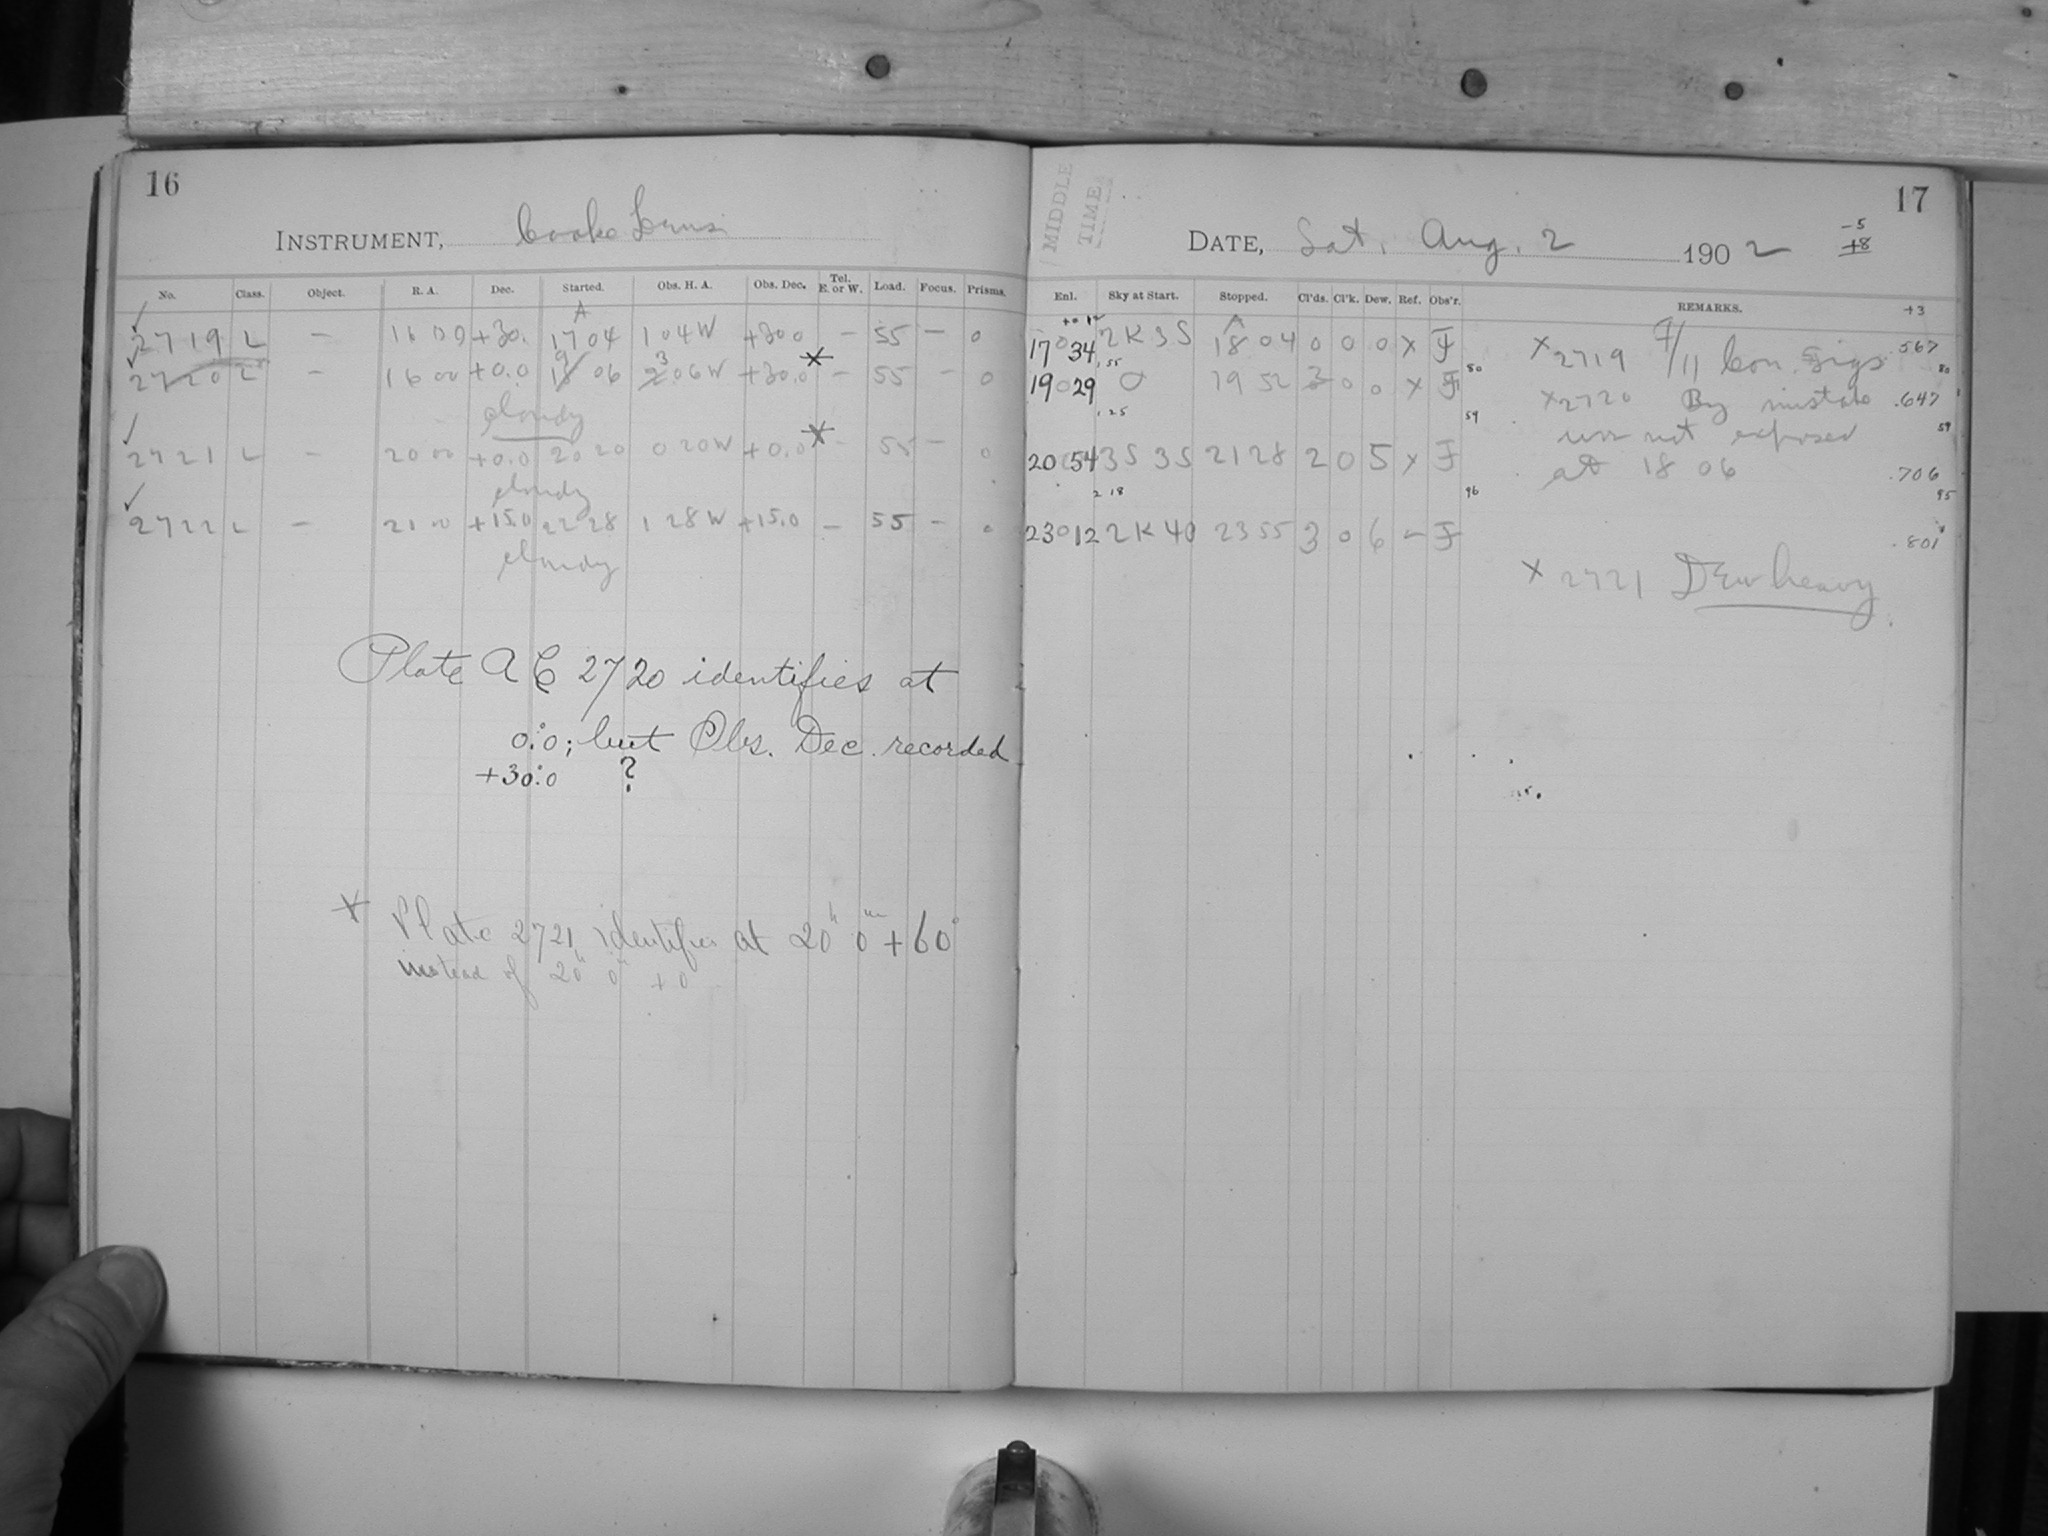 16
INSTRUMENT, Cooke Lens
No. Class. Object. R. A. Dec. Started. Obs. H. A. Obs. Dec. Tel. E. or W. Load. Focus. Prisms.
A
✓ 2719 L – 16 00 +30. 17 04 1 04 W +30 0 – 55 – 0
✓ 2720 L – 16 00 +0.0 18 9 06 2 3 06 W +30.0 * – 55 – 0
cloudy
✓ 2721 L – 20 00 +0.0 20 20 0 20 W +0.0 * – 55 – 0
cloudy
✓ 2722 L – 21 00 +15.0 22 28 1 28 W +15.0 – 55 – 0
cloudy
Plate A C 2720 identifies at
0°.0; but Obs. Dec. recorded
+30°.0 ?
* Plate 2721 identifies at 20h 0m +60°
instead of 20h 0m +0
MIDDLE
TIME
17
DATE, Sat. Aug. 2 1902
-5
+8
+3
Enl. Sky at Start. Stopped. Cl'ds. Cl'k. Dew. Ref. Obs'r. REMARKS.
17 0 34 2K3S 18 04 0 0 0 x F
1.55
80
19 0 29 0 19 52 3 0 0 x F
1.25
59
20 54 3S 3S 21 28 2 0 5 x F
2 18
96
23 0 12 2K 40 23 55 3 0 6 – F
x 2719 F/11 Con. Sigs .567
80
x 2720 By mistake .647
was not exposed 59
at 18 06 .706
95
.801
x 2721 Dew heavy.